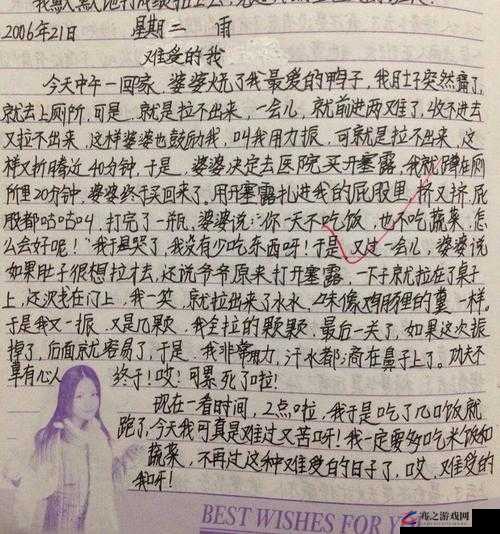 2006年21日 星期二 雨
难受的我
今天中午一回家,婆婆烧了我最爱的鸭子,我肚子突然痛了,
就去上厕所,可是,就是拉不出来,一会儿,就前进两难了,收不进去
又拉不出来,这样婆婆也鼓励我,叫我用力振,可就是拉不出来,这
样又折腾近40分钟,于是,婆婆决定去医院买开塞露,我就蹲在厕
所里20分钟,婆婆终于买回来了。用开塞露扎进我的屁股里,挤又挤,屁
股都咕咕叫,打完了一瓶,婆婆说:你一天不吃饭,也不吃蔬菜,怎
么会好呢!我干哭了,我没有少吃东西呀!于是,又过一会儿,婆婆说
如果肚子很想拉才去,还说爷爷原来打开塞露,一下子就拉在了桌子
上,还没找在门上,我一笑,就拉出来了水水,味像鸡用裡的糞一样。
于是我又一振,又是几颗,我全拉的颗颗,最后一关了,如果这次振
掉了,后面就容易了,于是,我非常用力,汗水都滴在鼻子上了。功夫不
辜有心人,终于!哎!可累死了啦!
现在一看时间,2点啦,我于是吃了几口饭就
跑了,今天我可真是难过又苦呀!我一定要多吃米饭和
蔬菜,不再过这种难受的日子了,哎,难受的
我呀!
BEST WISHES FOR Y
赛之游戏网